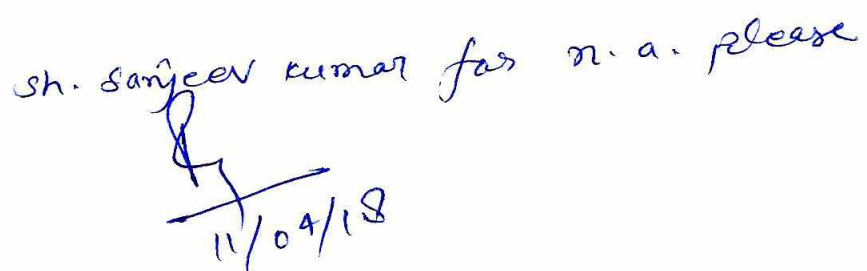 sh. Sanjeev kumar for n.a. please
11/04/18